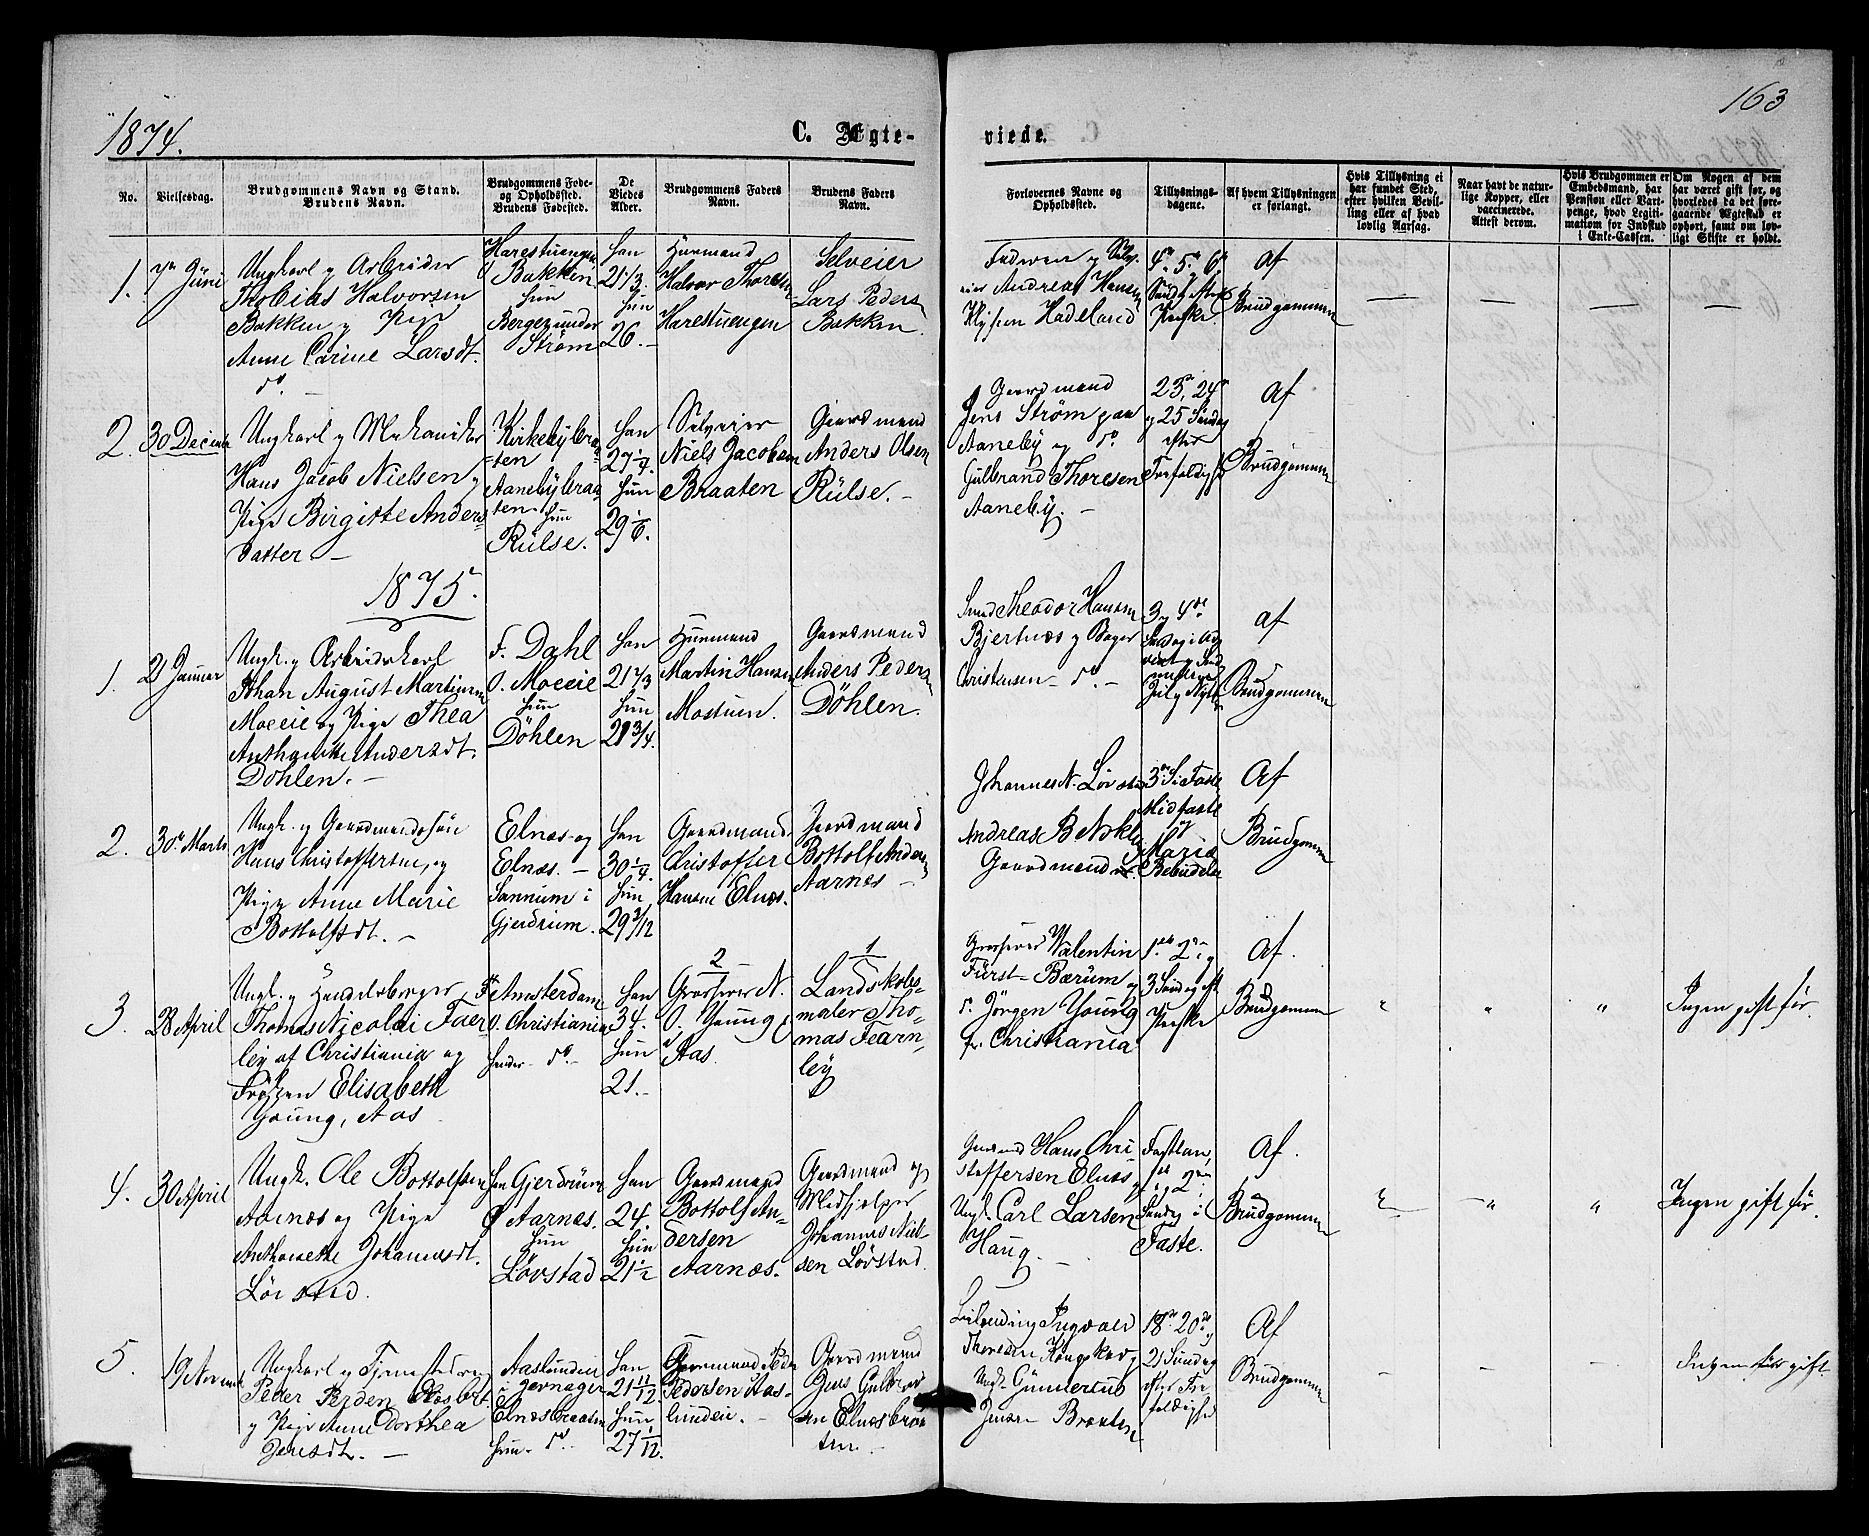 1874.
C. Ægte-
viede.
163
No.
Vielsesdag.
Brudgommens Navn og Stand.
Brudens Navn.
Brudgommens Føde-
og Opholdssted.
Brudens Fødested.
De
Viedes
Alder.
Brudgommens Faders
Navn.
Brudens Faders
Navn.
Forlovernes Navne og
Opholdssted.
Tillysnings-
dagene.
Af hvem Tillysningen
er forlangt.
Hvis Tillysning ei
har fundet Sted,
efter hvilken Bevil-
ling eller af hvad
lovlig Aarsag.
Naar havt de natur-
lige Kopper, eller
vaccinerede.
Attest derom.
Hvis Brudgommen er
Embedsmand, har
Pension eller Vart-
penge, hvad Legiti-
mation for Indskud
i Enke-Cassen.
Om Nogen af dem
har været gift før, og
hvorledes da det fore-
gaaende Ægteskab er
ophørt, samt om lov-
ligt Skifte er holdt.
1.
7de Juni
Ungkarl og Arbeider
Thobias Halvorsen
Bakken og Pige
Anne Carine Larsdt.
do –
Harestuengen
O. Bakken
hun
Bergerunder
Strøm
han
21 1/3.
hun
26. –
Husmand
Halvor Thoresen
Harestuengen
Selveier
Lars Peders
Bakken.
Andreas Hansen
Hadeland
4de 5te 6te
Sønd. efter
Paaske.
Af
Brudgommen
2.
30 Decimb
Ungkarl og Mekaniker
Hans Jacob Nielsen og
Pige Birgitte Anders
datter –
Kirkebybraa-
ten
Aanebybraa-
ten
hun
Rülse.
han
27 1/4.
hun
29 1/6.
Selveier
Niels Jacobsen
Braaten
Gaardmand
Anders Olsen
Rülse. –
Gaardmand
Jens Strøm paa
Aaneby og do.
Gulbrand Thoresen
Aaneby. –
23de, 24de
og 25 Søndag
efter
Trefoldigh
Af
Brudgommen
1875.
1.
2 Januar
Ungk. og Arbeidskarl
Johan August Martinsen
Moeeie og Pige Thea
Anthonette Andersdt.
Döhlen. –
F. Dahl
O. Moeeie
hun
Döhlen
han
21 1/3
hun
21 3/4.
Husmand
Martin Hansen
Mostuen.
Gaardmand
Anders Peders
Döhlen.
Theodor Hansen
Bjertnæs og
Christensen – do. –
3 og 4de
Af
Brudgommen
2.
30te Marts
Ungk. og Gaardmandssøn
Hans Christoffersen, og
Pige Anne Marie
Bottolfsdt. –
Elnæs og
Elnæs. –
Sannum i
Gjerdrum.
han
30 1/4.
hun
29 3/12
Gaardmand
Christoffer
Hansen Elnæs.
Gaardmand
Bottolf Anders
Aarnes –
Johannes N. Løvstad
Andreas B
Gaardmænd
3de S. i Faste
Midfaste
og
Mariæ
Bebudelse
Af
Brudgommen
3.
28 April
Ungk. og Handelsborger
Thomas Nicolai Fearn
ley af Christiania og
Frøken Elisabeth
Young, Aas
F. Amsterdam
O. Christiania
hendes do. –
han
34.
hun
21. –
2
Grosserer N.
O. Young
Aas.
1
Landskabs-
maler Tho-
mas Fearn-
ley
Grosserer Valentin
Fürst – Bærum og
do. Jörgen Young
fr. Christiania
1ste 2den og
3 Søndag eft
Paaske
Af.
Brudgommen
"
"
"
Ingen gift før.
4.
30 April
Ungk. Ole Bottolfsen
Aarnæs og Pige
Anthonette Johannesdt.
Løvstad.
han Gjerdrum
O Aarnes.
hun
Løvstad
han
24.
hun
21 1/2
Gaardmand
Bottolf An-
dersen
Aarnæs.
Gaardmand og
Medhjelper
Johannes Niel-
sen Løvstad.
Gaardmd Hans Chri
stoffersen Elnæs og
Ungk. Carl Larsen
Haug. –
Fastlav,
1ste og 2den
Søndag i
Faste.
Af.
Brudgommen
"
"
"
Ingen gift før.
5.
19 Novemb
Ungkarl og
Peder
og Pige Anne Dorthea
Jensdt. –
Aaslundeie
i Jevnager
Elnæsbraaten
hun do. –
han
21 11/12
hun
27 1/12.
Gaardmand Peder
Pedersen Aas-
lundeie. –
Gaardmand
Jens Gulbrand
sen Elnæsbraa
ten. –
Ingvald
Thoresen
Ungk. Gunnerius
Jensen Braaten
18de 20de og
21 Søndag
efter Tre
foldighed
Af
Brudgommen
–
–
Ingen før gift